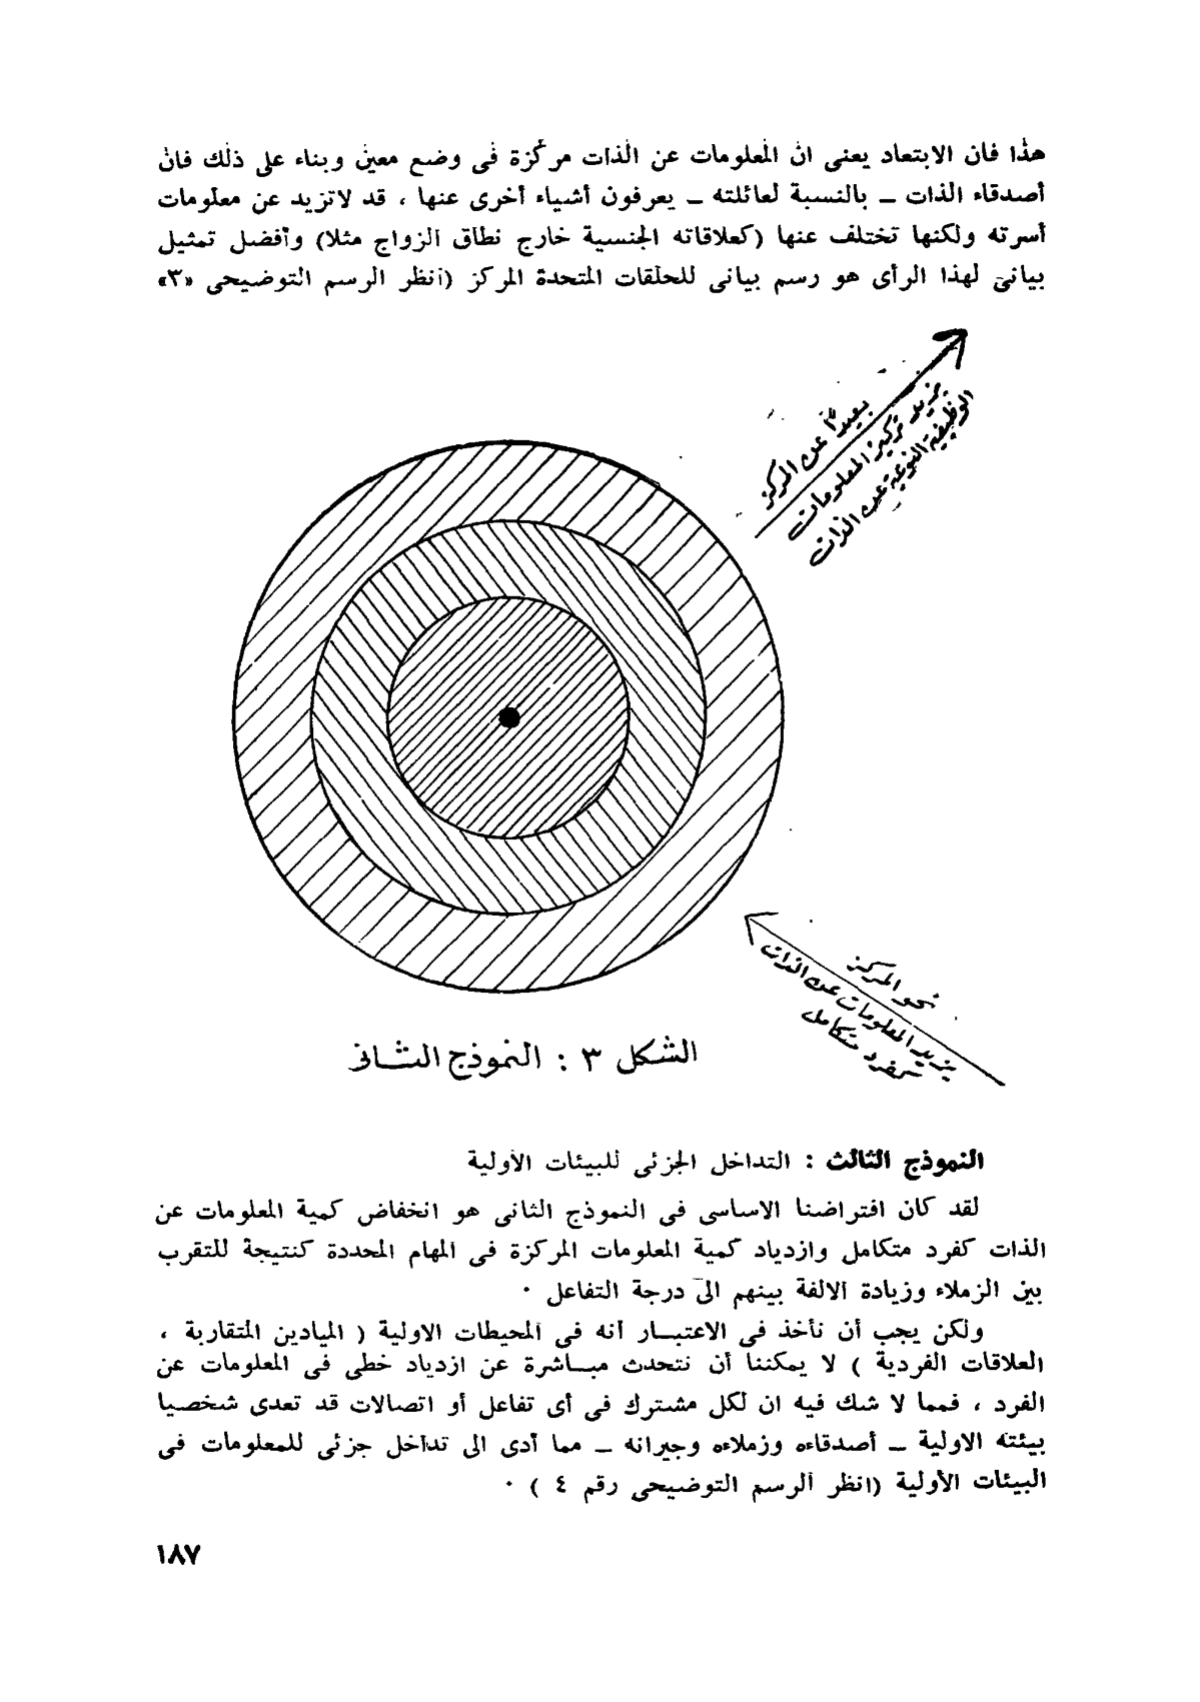 هذا فان الابتعاد يعنى ان المعلومات عن الذات مركزة فى وضع معين وبناء على ذلك فان
أصدقاء الذات ــ بالنسبة لعائلته ــ يعرفون أشياء أخرى عنها ، قد لاتزيد عن معلومات
أسرته ولكنها تختلف عنها (كعلاقاته الجنسية خارج نطاق الزواج مثلا) وأفضل تمثيل
بيانى لهذا الرأى هو رسم بيانى للحلقات المتحدة المركز (انظر الرسم التوضيحى «٣»
بعيداً عن المركز
يزيد تركيز المعلومات
الوظيفية النوعية عن الذات
نحو المركز
يزيد المعلومات عن الذات
كفرد متكامل
الشكل ٣ : النموذج الثانى
النموذج الثالث : التداخل الجزئى للبيئات الأولية
لقد كان افتراضنا الاساسى فى النموذج الثانى هو انخفاض كمية المعلومات عن
الذات كفرد متكامل وازدياد كمية المعلومات المركزة فى المهام المحددة كنتيجة للتقرب
بين الزملاء وزيادة الالفة بينهم الى درجة التفاعل ٠
ولكن يجب أن نأخذ فى الاعتبـــار أنه فى المحيطات الاولية ( الميادين المتقاربة ،
العلاقات الفردية ) لا يمكننا أن نتحدث مبـــاشرة عن ازدياد خطى فى المعلومات عن
الفرد ، فمما لا شك فيه ان لكل مشترك فى أى تفاعل أو اتصالات قد تعدى شخصيا
بيئته الاولية ــ أصدقاءه وزملاءه وجيرانه ــ مما أدى الى تداخل جزئى للمعلومات فى
البيئات الأولية (انظر الرسم التوضيحى رقم ٤ ) ٠
١٨٧